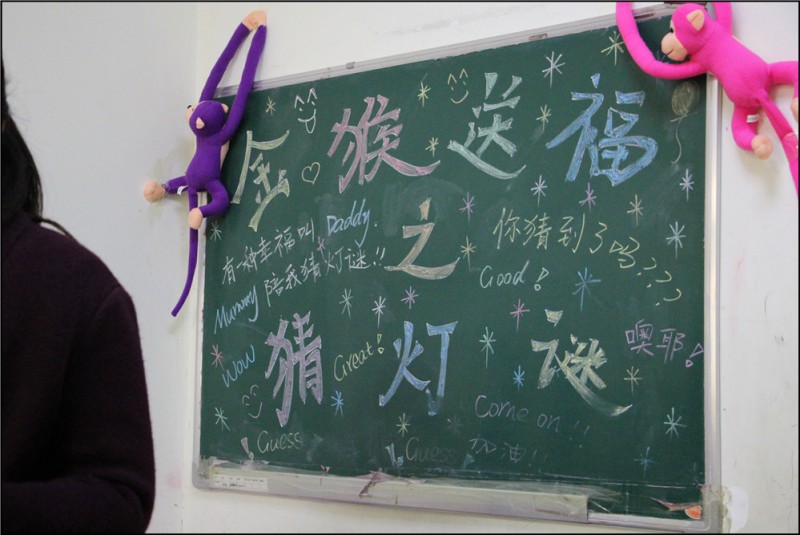 金猴送福
之
有一种幸福叫 Daddy.
Mummy 陪我猜灯谜!!
你猜到了吗???
Good!
猜灯谜
Wow
Great!
噢耶!
Come on!!
加油!!
Guess
Guess